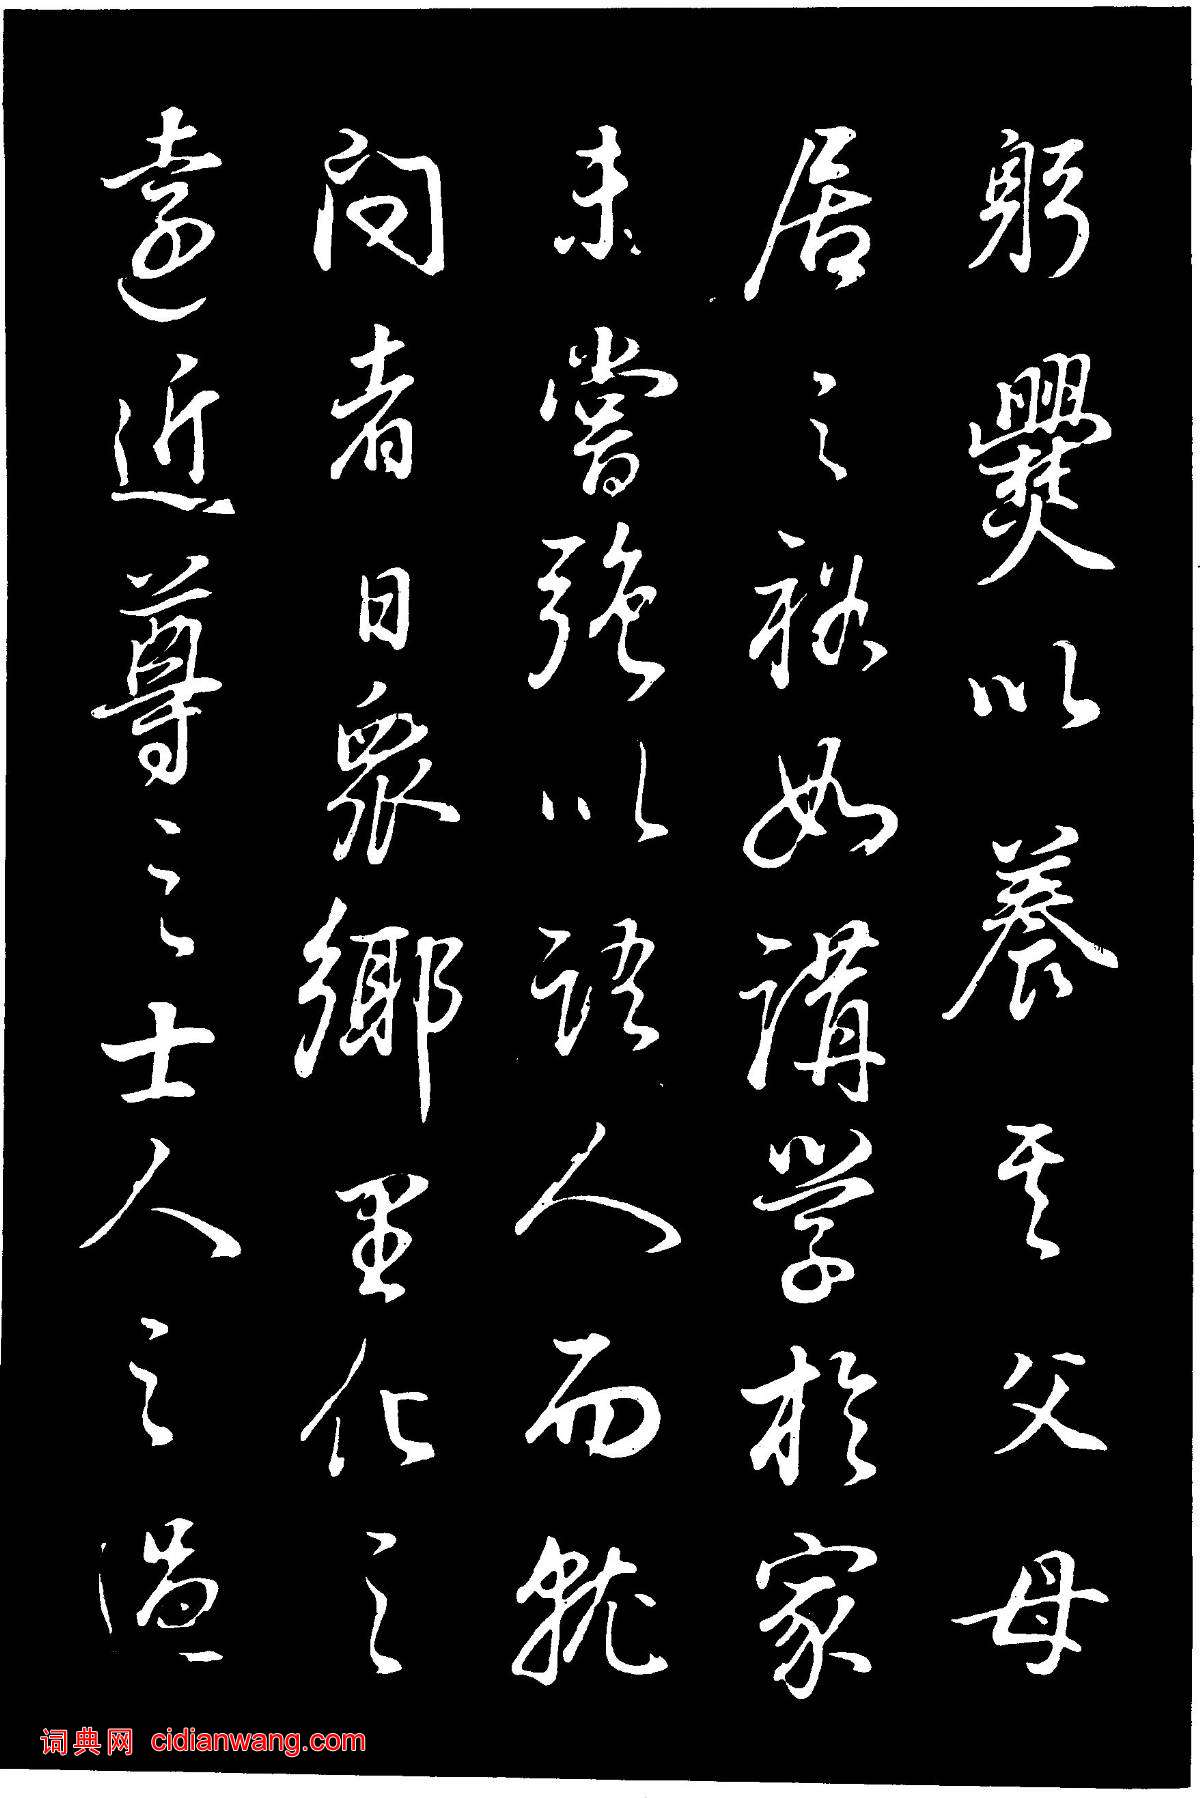 躬爨以養其父母
居之裕如講学於家
未嘗强以語人而就
问者日眾鄉里化之
遠近尊之士人之過
词典网 cidianwang.com